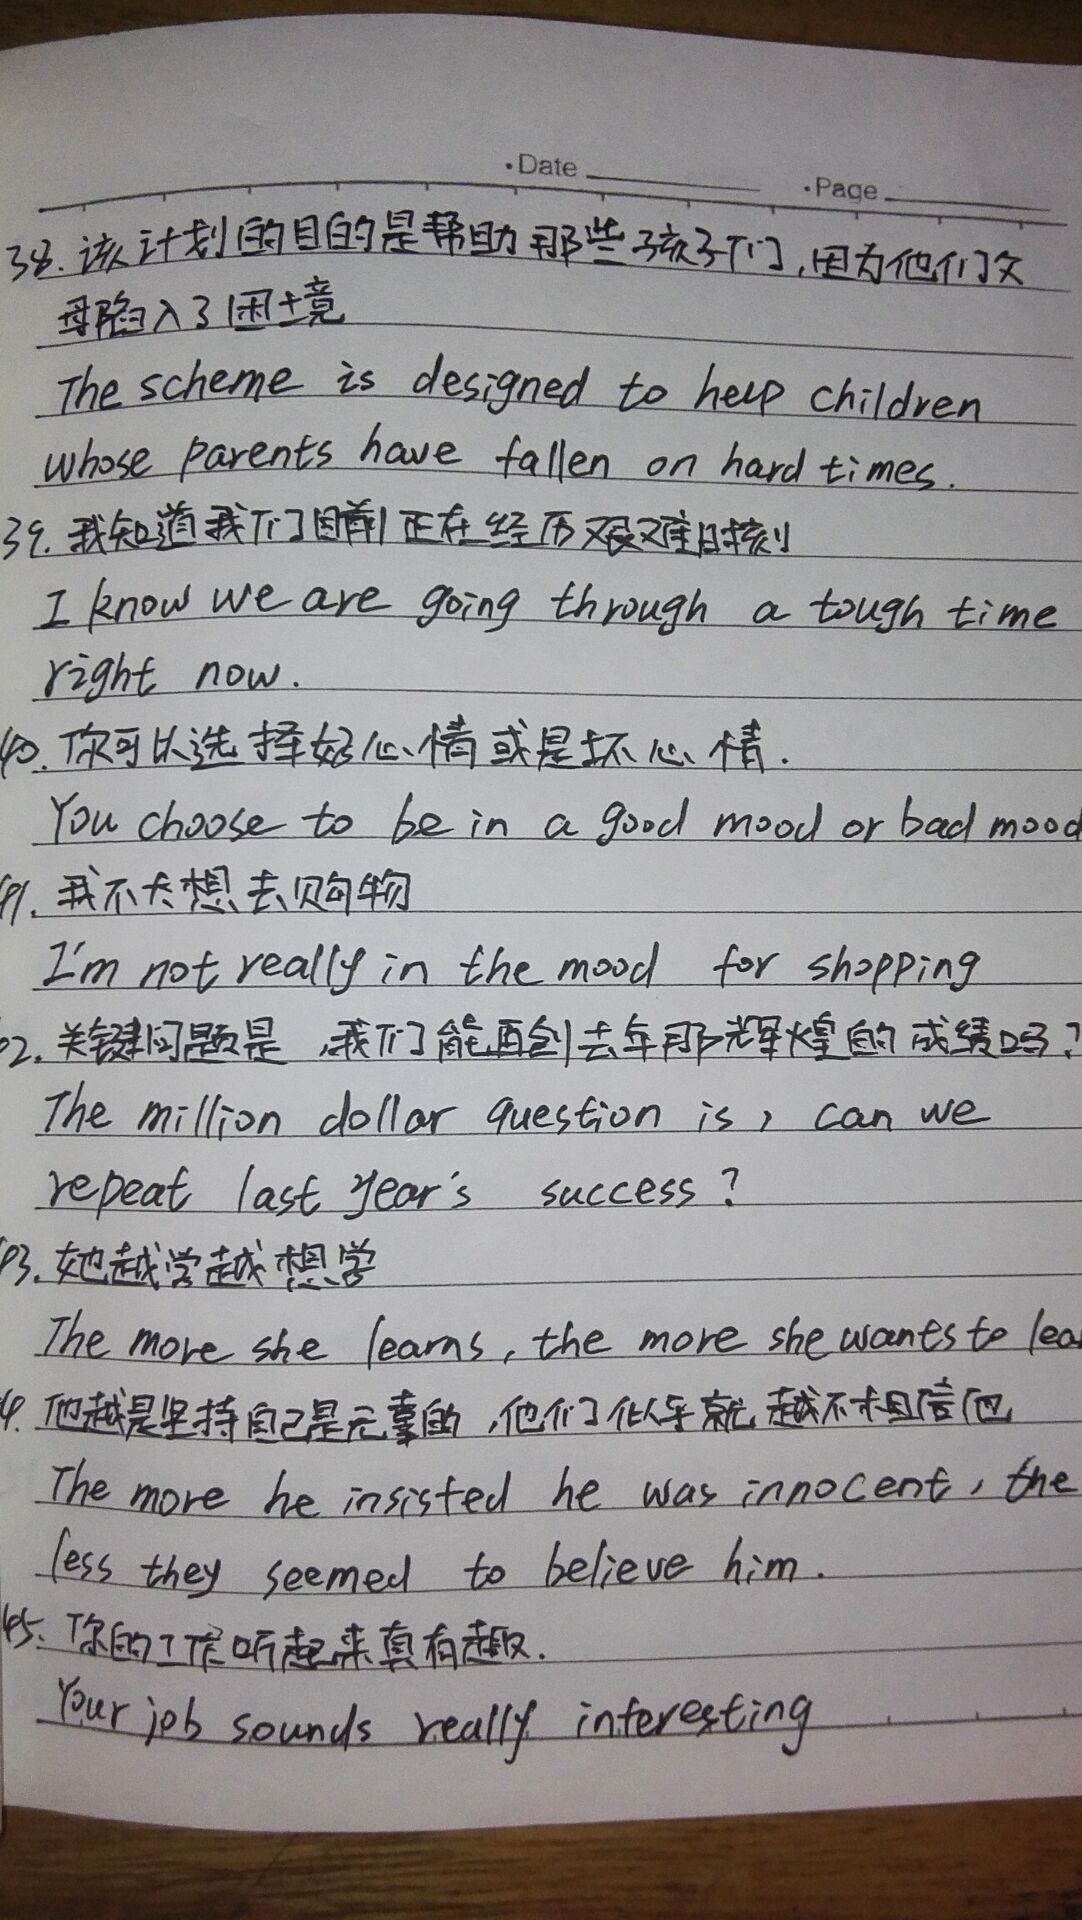 ·Date
·Page
38. 该计划的目的是帮助那些孩子们,因为他们父
母陷入了困境
The scheme is designed to help children
whose parents have fallen on hard times.
39. 我知道我们目前正在经历艰难时刻
I know we are going through a tough time
right now.
40. 你可以选择好心情或是坏心情.
You choose to be in a good mood or bad mood
41. 我不大想去购物
I'm not really in the mood for shopping
02. 关键问题是,我们能再创去年那辉煌的成绩吗?
The million dollar question is, can we
repeat last year's success?
43. 她越学越想学
The more she learns, the more she wants to lea
4. 他越是坚持自己是无辜的,他们似乎就越不相信他
The more he insisted he was innocent, the
less they seemed to believe him.
45. 你的工作听起来真有趣.
Your job sounds really interesting